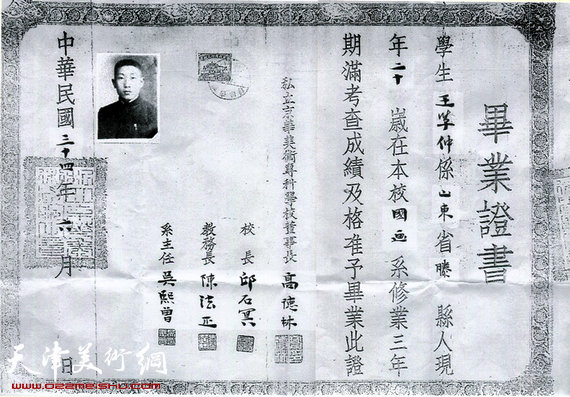 畢業證書
學生王學仲係山東省滕縣人現
年二十歲在本校國画系修業三年
期滿考查成績及格准予畢業此證
私立京華美術專科學校董事長高德林
校長邱石冥
教務長陳法正
系主任吳熙曾
中華民國三十四年六月 日
天津美術網
www.022meishu.com